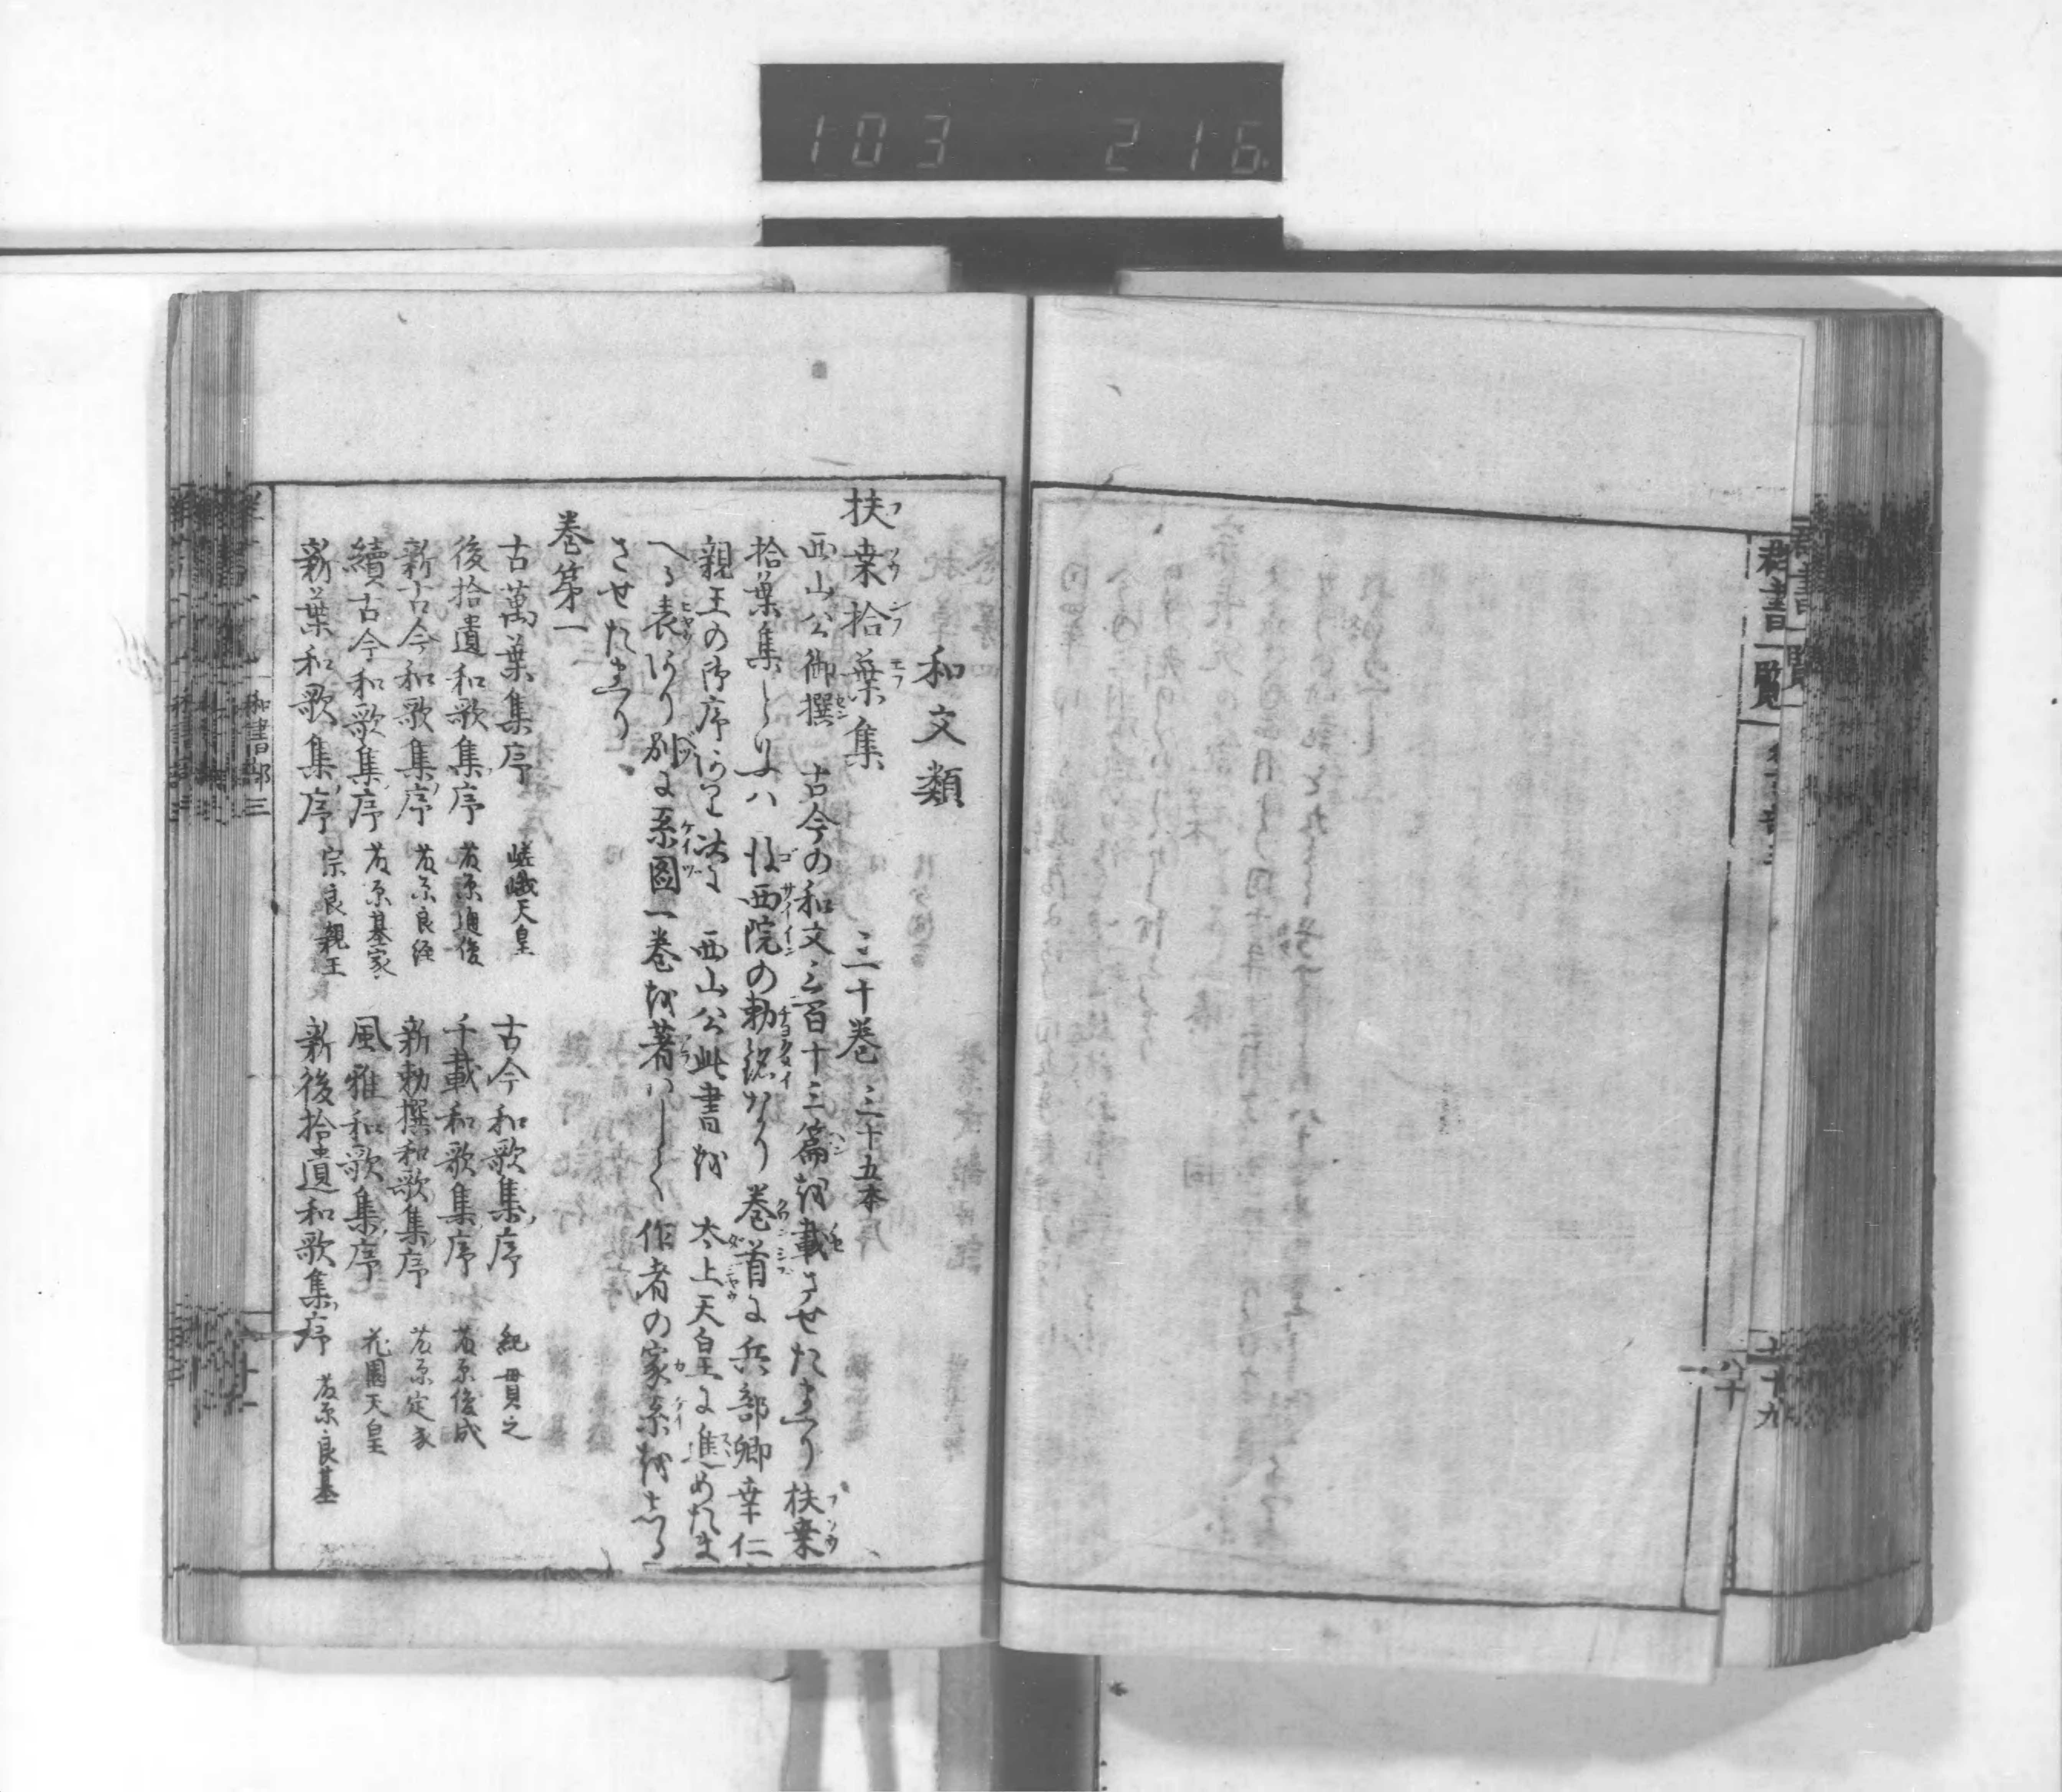 103 216
群書一覧
七十九
八十
和文類
扶桒拾葉集 三十巻 三十五本
西山公御撰 古今の和文三百十三篇を載させたまへり 扶桒
拾葉集といふハ 後西院の勅銘なり 巻首に兵部卿幸仁
親王の御序あり 次に 西山公此書を 太上天皇に進めたま
へる表あり 別に系圖一巻を著ハして 作者の家系をしる
させたまへり
巻第一
古萬葉集序 嵯峨天皇 古今和歌集序 紀貫之
後拾遺和歌集序 藤原通俊 千載和歌集序 藤原俊成
新古今和歌集序 藤原良経 新勅撰和歌集序 藤原定家
續古今和歌集序 藤原基家 風雅和歌集序 花園天皇
新葉和歌集序 宗良親王 新後拾遺和歌集序 藤原良基
和書部三